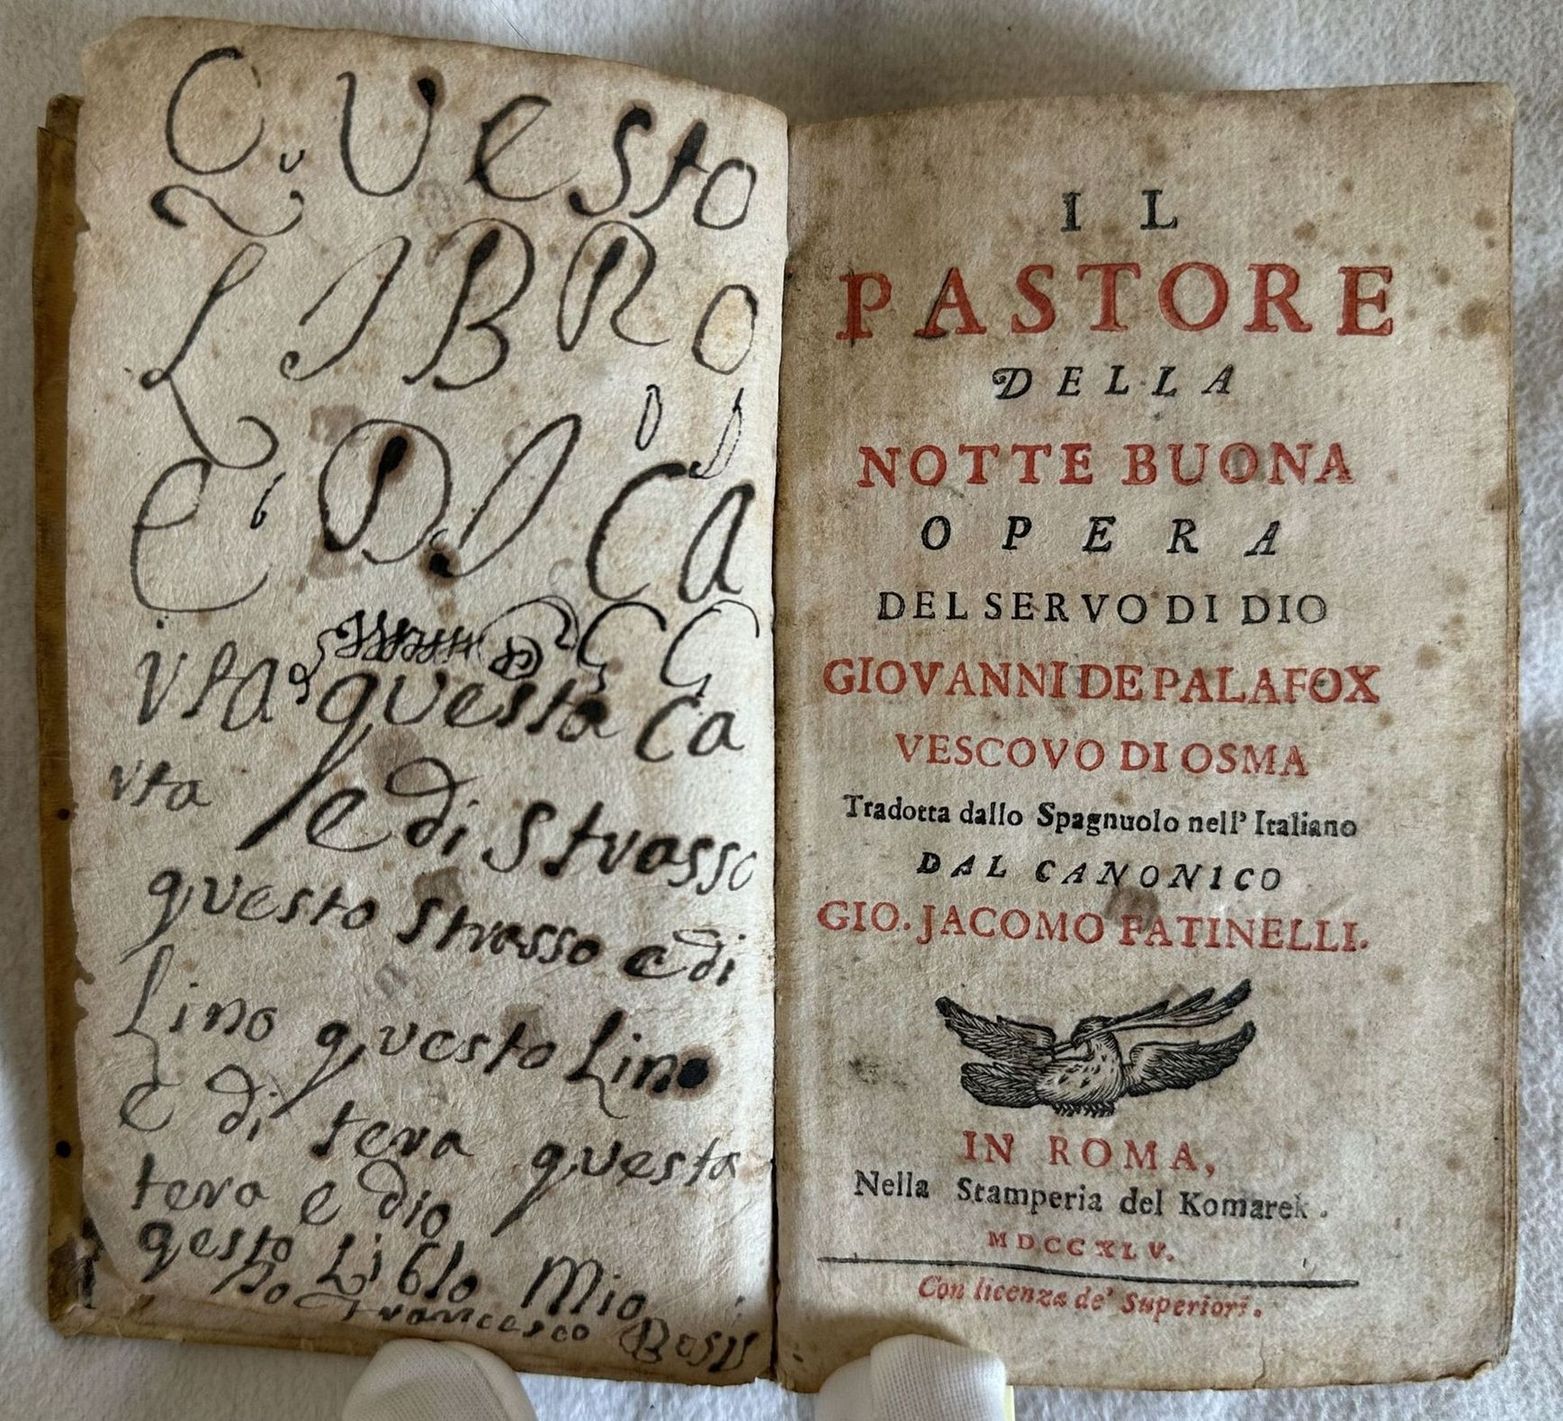 QVesto
LIBRO
E DI Ca
rta questa Ca
rta e di strasso
questo strasso e di
Lino questo Lino
e di tera questa
tera e dio
qesto Liblo Mio
Io Francesco Bosis
IL
PASTORE
DELLA
NOTTE BUONA
OPERA
DEL SERVO DI DIO
GIOVANNI DE PALAFOX
VESCOVO DI OSMA
Tradotta dallo Spagnuolo nell' Italiano
DAL CANONICO
GIO. JACOMO FATINELLI.
IN ROMA,
Nella Stamperia del Komarek.
MDCCXLV.
Con licenza de' Superiori.